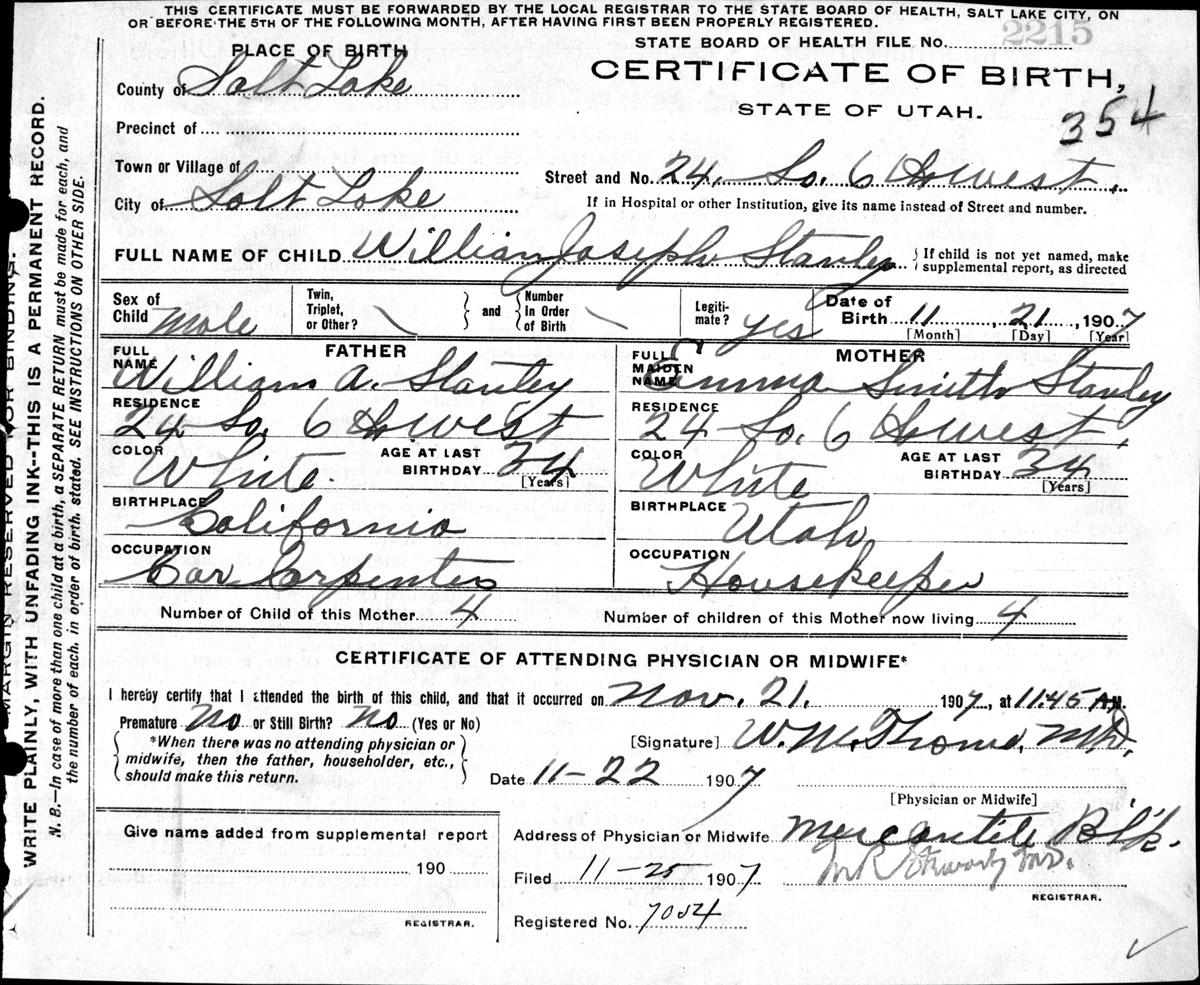 THIS CERTIFICATE MUST BE FORWARDED BY THE LOCAL REGISTRAR TO THE STATE BOARD OF HEALTH, SALT LAKE CITY, ON
OR BEFORE THE 5TH OF THE FOLLOWING MONTH, AFTER HAVING FIRST BEEN PROPERLY REGISTERED.
STATE BOARD OF HEALTH FILE No. 2215
PLACE OF BIRTH
CERTIFICATE OF BIRTH,
STATE OF UTAH.
354
County of Salt Lake
Precinct of
Town or Village of
Street and No. 24 So. 6 West.
City of Salt Lake
If in Hospital or other Institution, give its name instead of Street and number.
FULL NAME OF CHILD William Joseph Stanley
If child is not yet named, make
supplemental report, as directed
Sex of Child Male
Twin, Triplet, or Other?
and
Number In Order of Birth
Legiti-mate? yes
Date of Birth 11, 21, 1907
[Month] [Day] [Year]
FATHER
FULL NAME William A. Stanley
RESIDENCE 24 So. 6 West
COLOR White.
AGE AT LAST BIRTHDAY 34
[Years]
BIRTHPLACE California
OCCUPATION Car Carpenter
MOTHER
FULL MAIDEN NAME Emma Smith Stanley
RESIDENCE 24 So. 6 West,
COLOR White
AGE AT LAST BIRTHDAY 34
[Years]
BIRTHPLACE Utah
OCCUPATION Housekeeper
Number of Child of this Mother 4
Number of children of this Mother now living 4
CERTIFICATE OF ATTENDING PHYSICIAN OR MIDWIFE*
I hereby certify that I attended the birth of this child, and that it occurred on Nov. 21. 1907, at 11.45 A.M.
Premature No or Still Birth? No (Yes or No)
*When there was no attending physician or
midwife, then the father, householder, etc.,
should make this return.
[Signature] W. M. M.D.
Date 11-22 1907
[Physician or Midwife]
Give name added from supplemental report
190
REGISTRAR.
Address of Physician or Midwife Mercantile Blk.
Filed 11-25 1907
M.D.
REGISTRAR.
Registered No. 7054
MARGIN RESERVED FOR BINDING.
WRITE PLAINLY, WITH UNFADING INK--THIS IS A PERMANENT RECORD.
N. B.--In case of more than one child at a birth, a SEPARATE RETURN must be made for each, and
the number of each, in order of birth, stated. SEE INSTRUCTIONS ON OTHER SIDE.